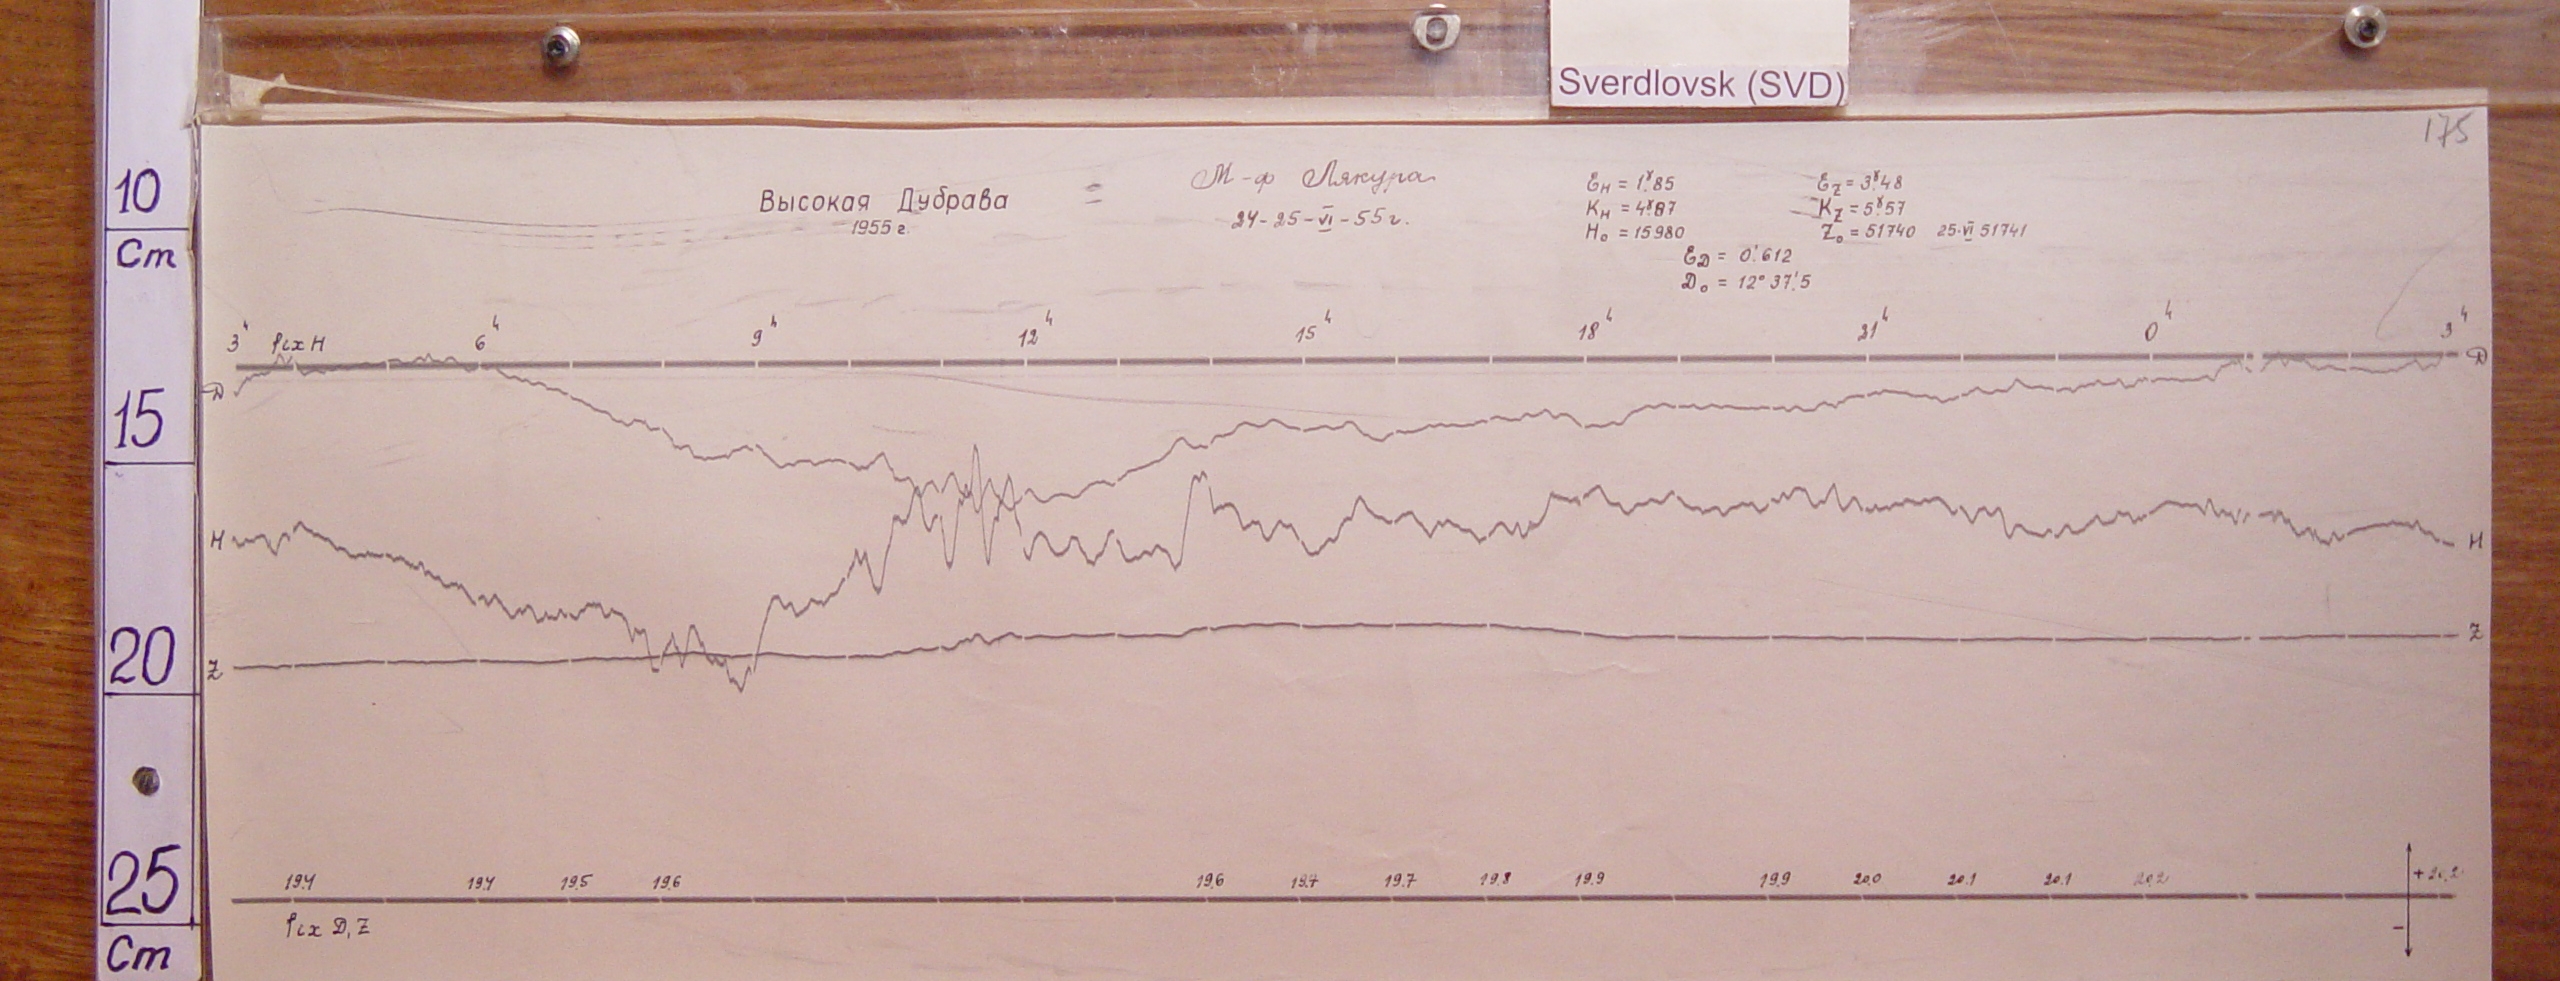 Sverdlovsk (SVD)
175
10
Cm
15
20
25
Cm
Высокая Дубрава
1955 г.
М-ф Лякура
24-25-VI-55г.
Ɛн = 1ˠ.85
Kн = 4ˠ.87
H₀ = 15980
Ɛz = 3ˠ.48
Kz = 5ˠ.57
Z₀ = 51740 25·VI 51741
ƐD = 0'.612
D₀ = 12° 37'.5
3ʰ fix H 6ʰ 9ʰ 12ʰ 15ʰ 18ʰ 21ʰ 0ʰ 3ʰ
D D
H H
Z Z
19.4 19.4 19.5 19.6 19.6 19.7 19.7 19.8 19.9 19.9 20.0 20.1 20.1 20.2 +20.2
fix D, Z
−